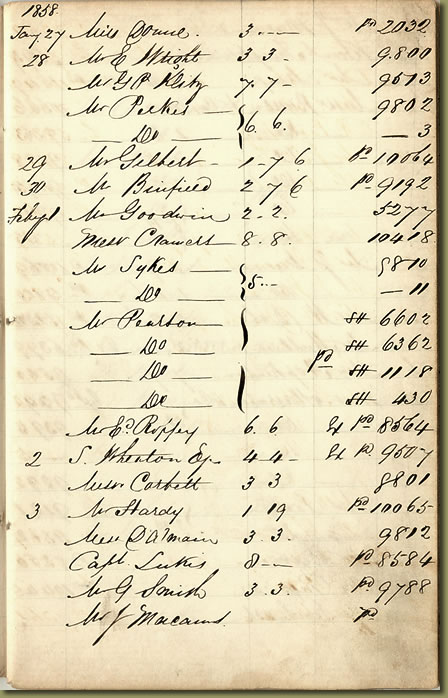 1858
Jany 27 Miss Donne. 3 -- pd 2032
28 Mr E Wright 3 3 - 9.800
Mr G P 7. 7 - 9573
Mr Perkes 9802
— Do — 6. 6. — 3
29 Mr Gilbert - 1 - 7 6 pd 10064
30 Mr Binfield 2 - 7 6 pd 9192
Feby 1 Mr Goodwin 2. 2. 5277
Messrs Cramers 8. 8. 10418
Mr Sykes 9870
— Do — 5 -- — 11
Mr Pearson 6602
— Do — 6362
— Do — pd 1118
— Do — 430
Mr 6. 6 Ex pd 8564
2 S. Wheaton Esq. 4 4 - Ex pd 9507
Messrs Corbett 3 3 8801
3 Mr Hardy 1 19 pd 10065
Messrs D'Almaine 3. 3. 9812
Capt. Lukis 8 -- pd 8584
Mr G Smith 3. 3. pd 9788
Mr J pd